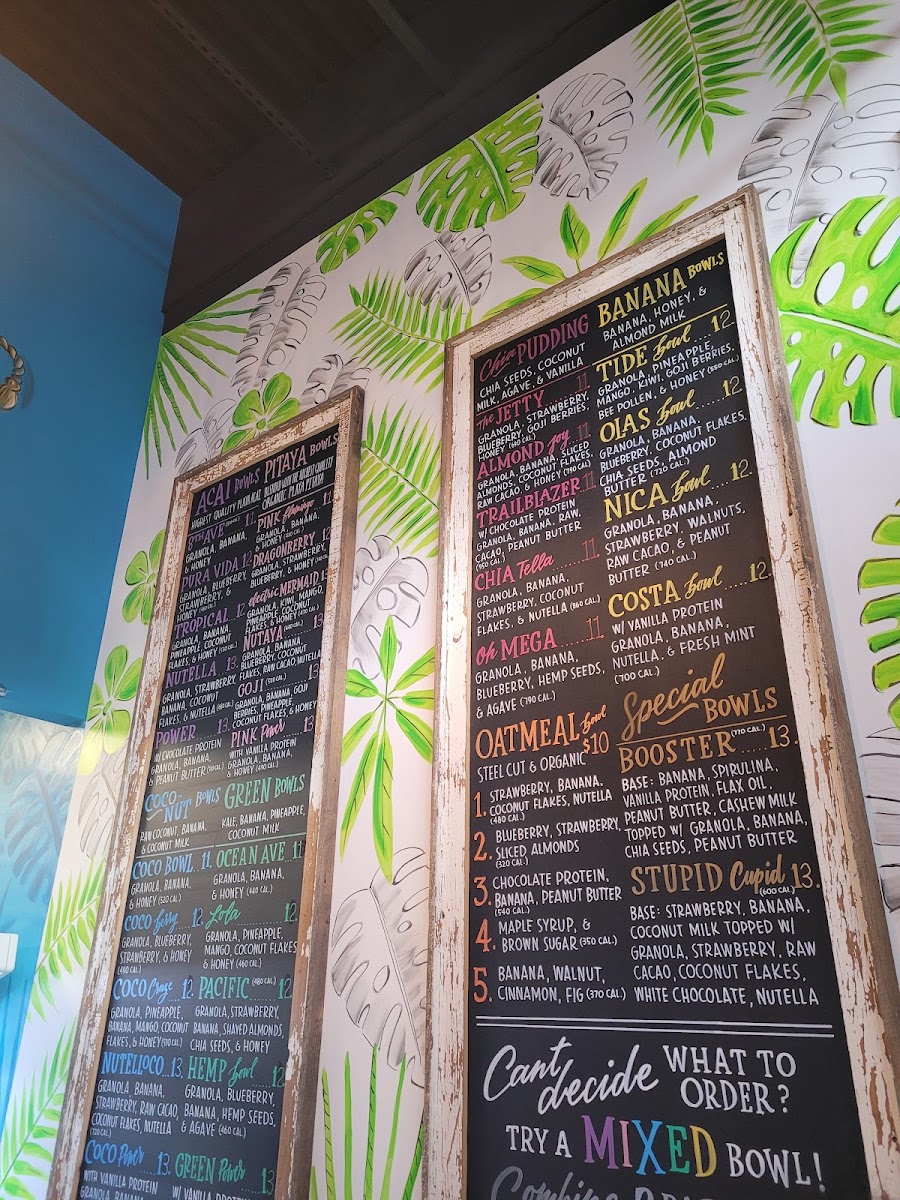 ACAI BOWLS
HIGHEST QUALITY PLANT ACAI
7TH AVE 11.
GRANOLA, BANANA,
& HONEY
PURA VIDA 12
GRANOLA, BLUEBERRY,
STRAWBERRY, &
HONEY
TROPICAL
GRANOLA, BANANA,
PINEAPPLE, COCONUT
FLAKES, & HONEY
NUTELLA 13.
GRANOLA, STRAWBERRY,
BANANA, COCONUT
FLAKES, & NUTELLA
POWER 13.
W/ CHOCOLATE PROTEIN
GRANOLA, BANANA,
& PEANUT BUTTER
PITAYA BOWLS
ORGANIC PLATA PITAYA
PINK Flamingo 11.
GRANOLA, BANANA,
& HONEY
DRAGONBERRY 12
GRANOLA, STRAWBERRY,
BLUEBERRY, & HONEY
electric MERMAID
GRANOLA, KIWI, MANGO,
PINEAPPLE, COCONUT
FLAKES, & HONEY
NUTAYA 13
GRANOLA, BANANA,
BLUEBERRY, COCONUT
FLAKES, RAW CACAO, NUTELLA
GOJI 13
GRANOLA, BANANA, GOJI
BERRIES, PINEAPPLE,
COCONUT FLAKES, & HONEY
PINK Power 13
WITH VANILLA PROTEIN
GRANOLA, BANANA,
& HONEY
COCO-
NUT BOWLS
RAW COCONUT, BANANA,
& COCONUT MILK
COCO BOWL 11.
GRANOLA, BANANA,
& HONEY (520 CAL.)
COCO Berry 12.
GRANOLA, BLUEBERRY,
STRAWBERRY, & HONEY
(490 CAL.)
COCO Craze 12.
GRANOLA, PINEAPPLE,
BANANA, MANGO, COCONUT
FLAKES, & HONEY
NUTELLOCO 13.
GRANOLA, BANANA,
STRAWBERRY, RAW CACAO,
COCONUT FLAKES, NUTELLA
(720 CAL.)
COCO Power 13.
WITH VANILLA PROTEIN
GRANOLA, BANANA
GREEN BOWLS
KALE, BANANA, PINEAPPLE,
COCONUT MILK
OCEAN AVE 11
GRANOLA, BANANA,
& HONEY (410 CAL.)
Lola 12.
GRANOLA, PINEAPPLE,
MANGO, COCONUT FLAKES
& HONEY (460 CAL.)
PACIFIC (460 CAL.) 12
GRANOLA, STRAWBERRY,
BANANA, SHAVED ALMONDS,
CHIA SEEDS, & HONEY
HEMP Bowl 12
GRANOLA, BLUEBERRY,
BANANA, HEMP SEEDS,
& AGAVE (460 CAL.)
GREEN Power 13
W/ VANILLA PROTEIN
Chia PUDDING
CHIA SEEDS, COCONUT
MILK, AGAVE, & VANILLA
The JETTY 11.
GRANOLA, STRAWBERRY,
BLUEBERRY, GOJI BERRIES,
HONEY (640 CAL.)
ALMOND Joy 11
GRANOLA, BANANA, SLICED
ALMONDS, COCONUT FLAKES,
RAW CACAO, & HONEY (790 CAL.)
TRAILBLAZER 11
W/ CHOCOLATE PROTEIN
GRANOLA, BANANA, RAW
CACAO, PEANUT BUTTER
(950 CAL.)
CHIA Tella 11.
GRANOLA, BANANA,
STRAWBERRY, COCONUT
FLAKES, & NUTELLA (860 CAL.)
Oh MEGA 11.
GRANOLA, BANANA,
BLUEBERRY, HEMP SEEDS,
& AGAVE (790 CAL.)
OATMEAL Bowl
$10
STEEL CUT & ORGANIC
1. STRAWBERRY, BANANA,
COCONUT FLAKES, NUTELLA
(480 CAL.)
2. BLUEBERRY, STRAWBERRY,
SLICED ALMONDS
(320 CAL.)
3. CHOCOLATE PROTEIN,
BANANA, PEANUT BUTTER
(540 CAL.)
4. MAPLE SYRUP, &
BROWN SUGAR (350 CAL.)
5. BANANA, WALNUT,
CINNAMON, FIG (370 CAL.)
BANANA BOWLS
BANANA, HONEY, &
ALMOND MILK
TIDE Bowl 12.
GRANOLA, PINEAPPLE
MANGO, KIWI, GOJI BERRIES,
BEE POLLEN, & HONEY (550 CAL.)
OIAS Bowl 12.
GRANOLA, BANANA,
BLUEBERRY, COCONUT FLAKES,
CHIA SEEDS, ALMOND
BUTTER (720 CAL.)
NICA Bowl 12.
GRANOLA, BANANA,
STRAWBERRY, WALNUTS,
RAW CACAO, & PEANUT
BUTTER (740 CAL.)
COSTA Bowl 12.
W/ VANILLA PROTEIN
GRANOLA, BANANA,
NUTELLA, & FRESH MINT
(700 CAL.)
Special
BOWLS
BOOSTER (770 CAL.) 13.
BASE: BANANA, SPIRULINA,
VANILLA PROTEIN, FLAX OIL,
PEANUT BUTTER, CASHEW MILK
TOPPED W/ GRANOLA, BANANA,
CHIA SEEDS, PEANUT BUTTER
STUPID Cupid 13.
(600 CAL.)
BASE: STRAWBERRY, BANANA,
COCONUT MILK TOPPED W/
GRANOLA, STRAWBERRY, RAW
CACAO, COCONUT FLAKES,
WHITE CHOCOLATE, NUTELLA
Cant decide WHAT TO
ORDER?
TRY A MIXED BOWL!
Combine